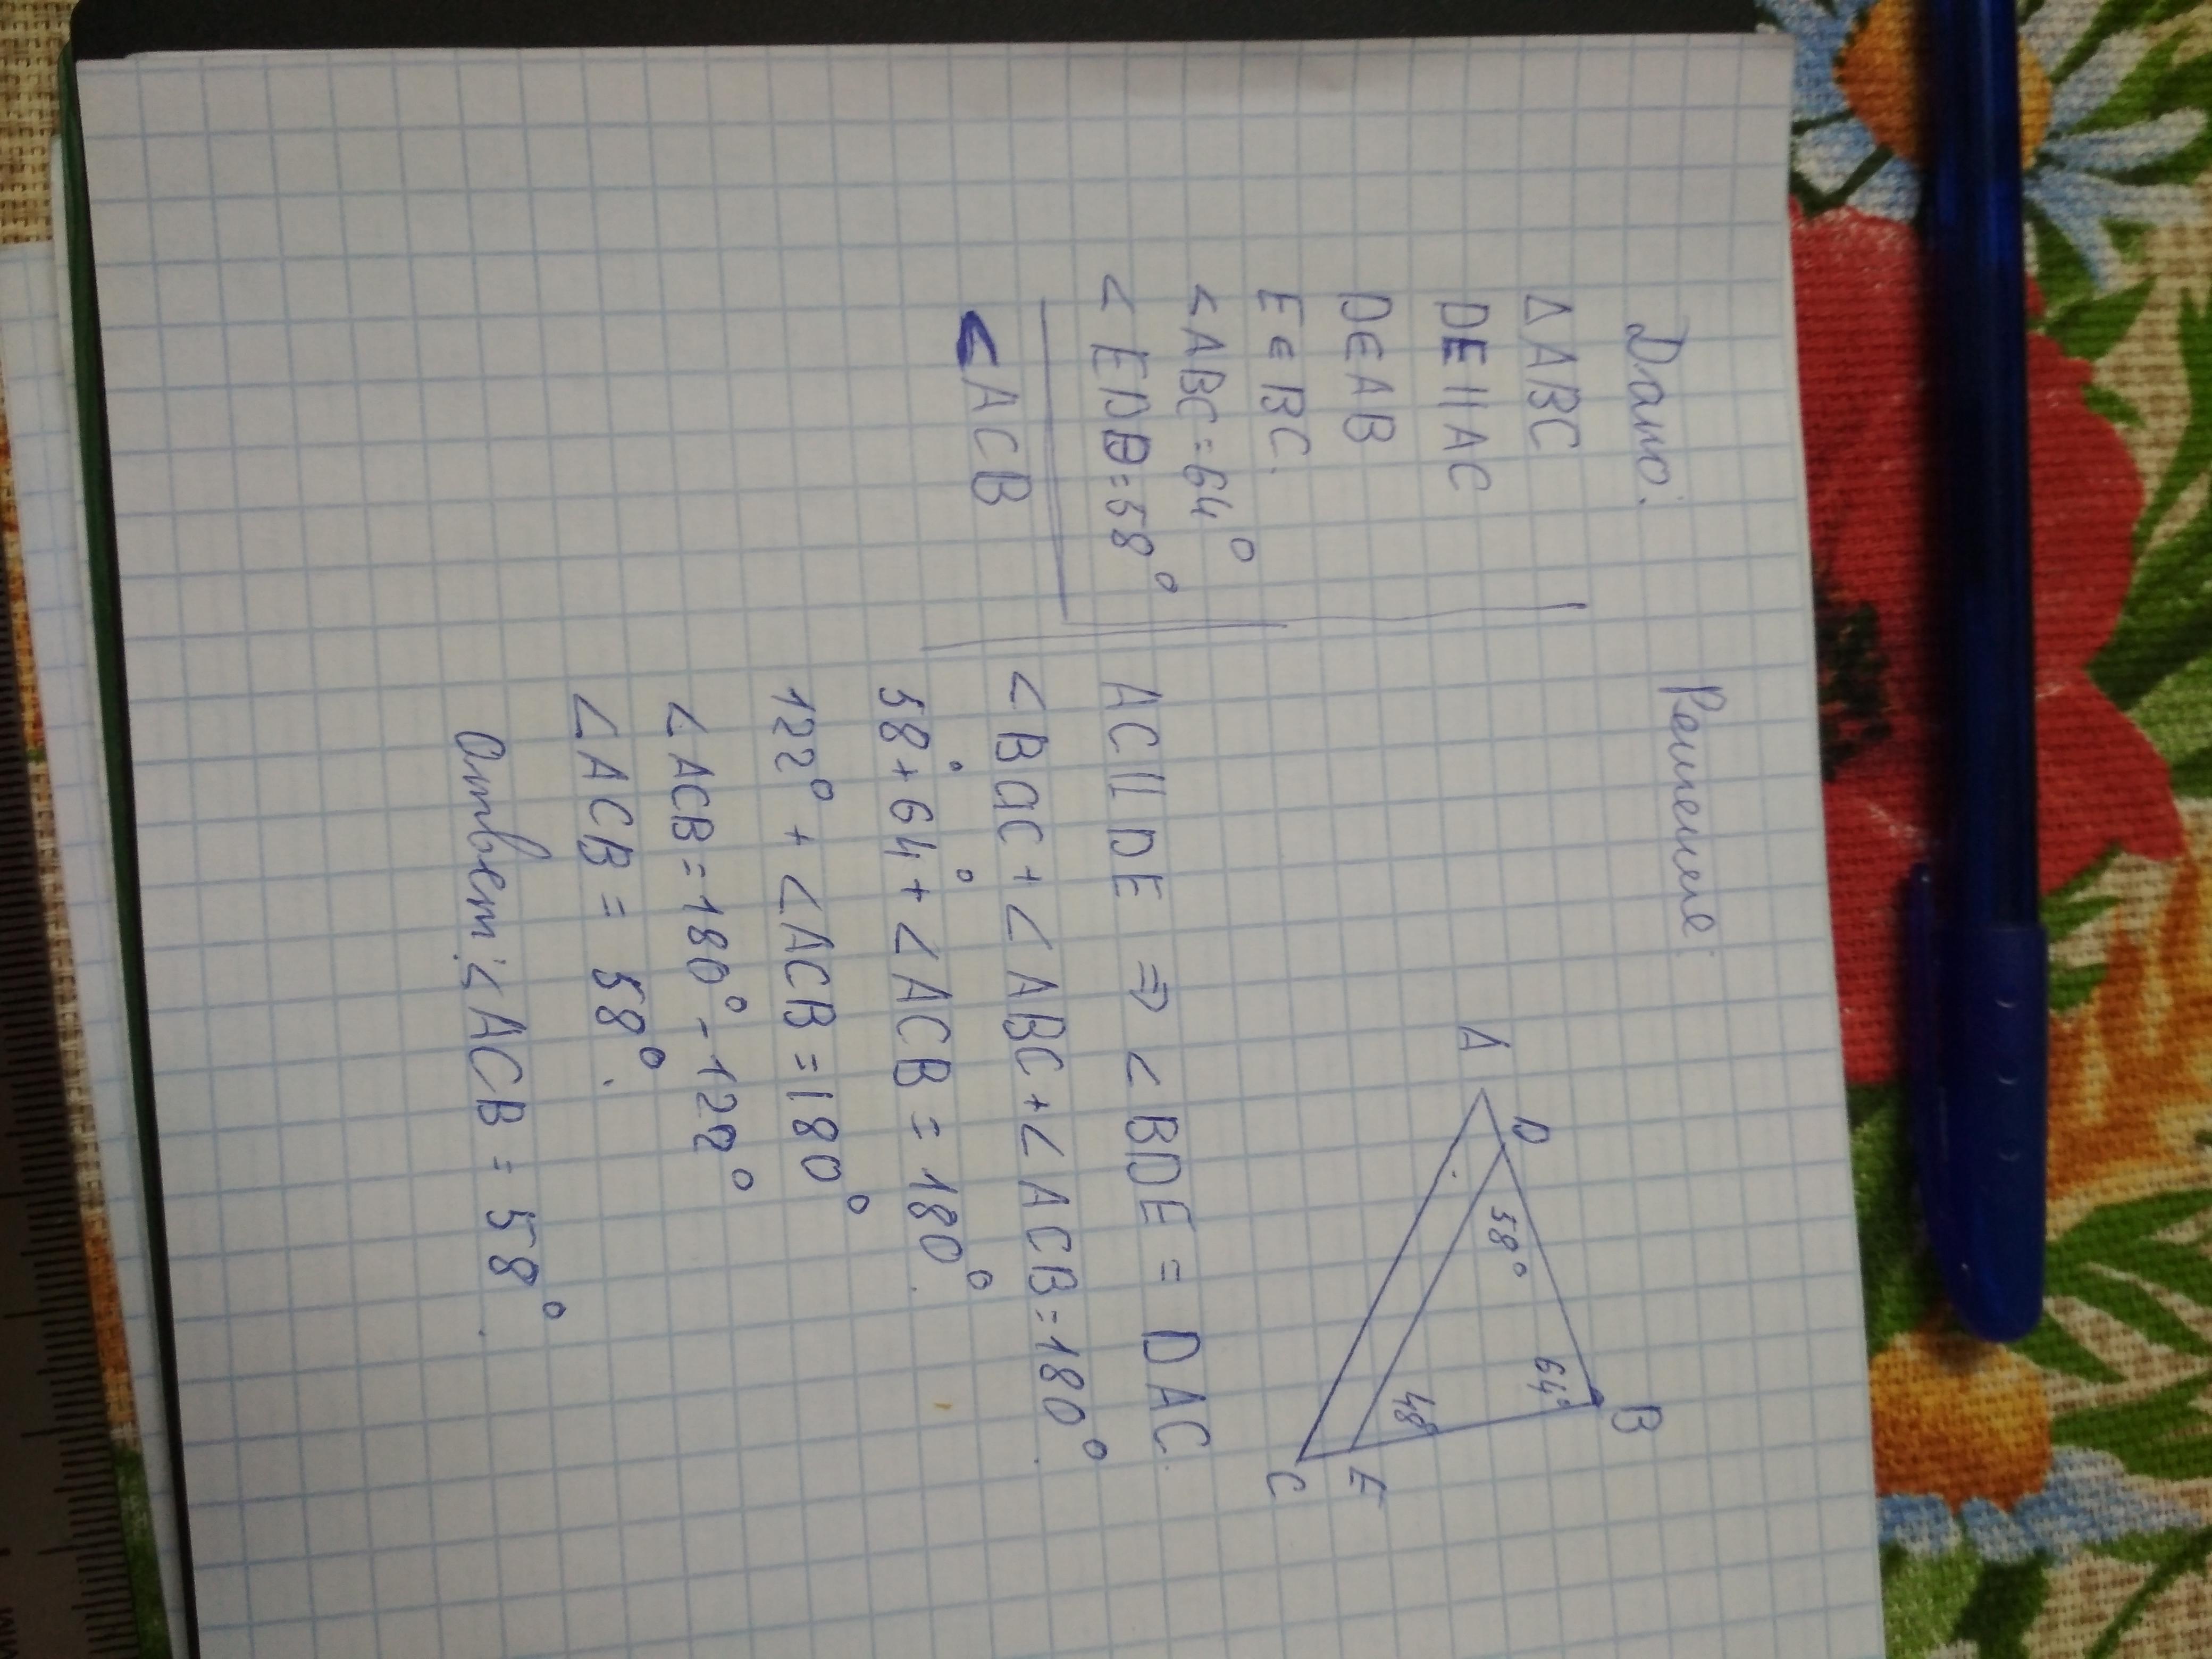 Дано:
Δ ABC
DE || AC
D∈AB
E∈BC.
<ABC=64°
<EDB=58°
<ACB
Решение:
A
D
B
58°
64°
48°
E
C
AC || DE ⇒ <BDE = DAC.
<BaC+<ABC+<ACB=180°.
58°+64°+<ACB=180°.
122°+<ACB=180°
<ACB=180°-122°
<ACB= 58°.
Ответ:<ACB=58°.